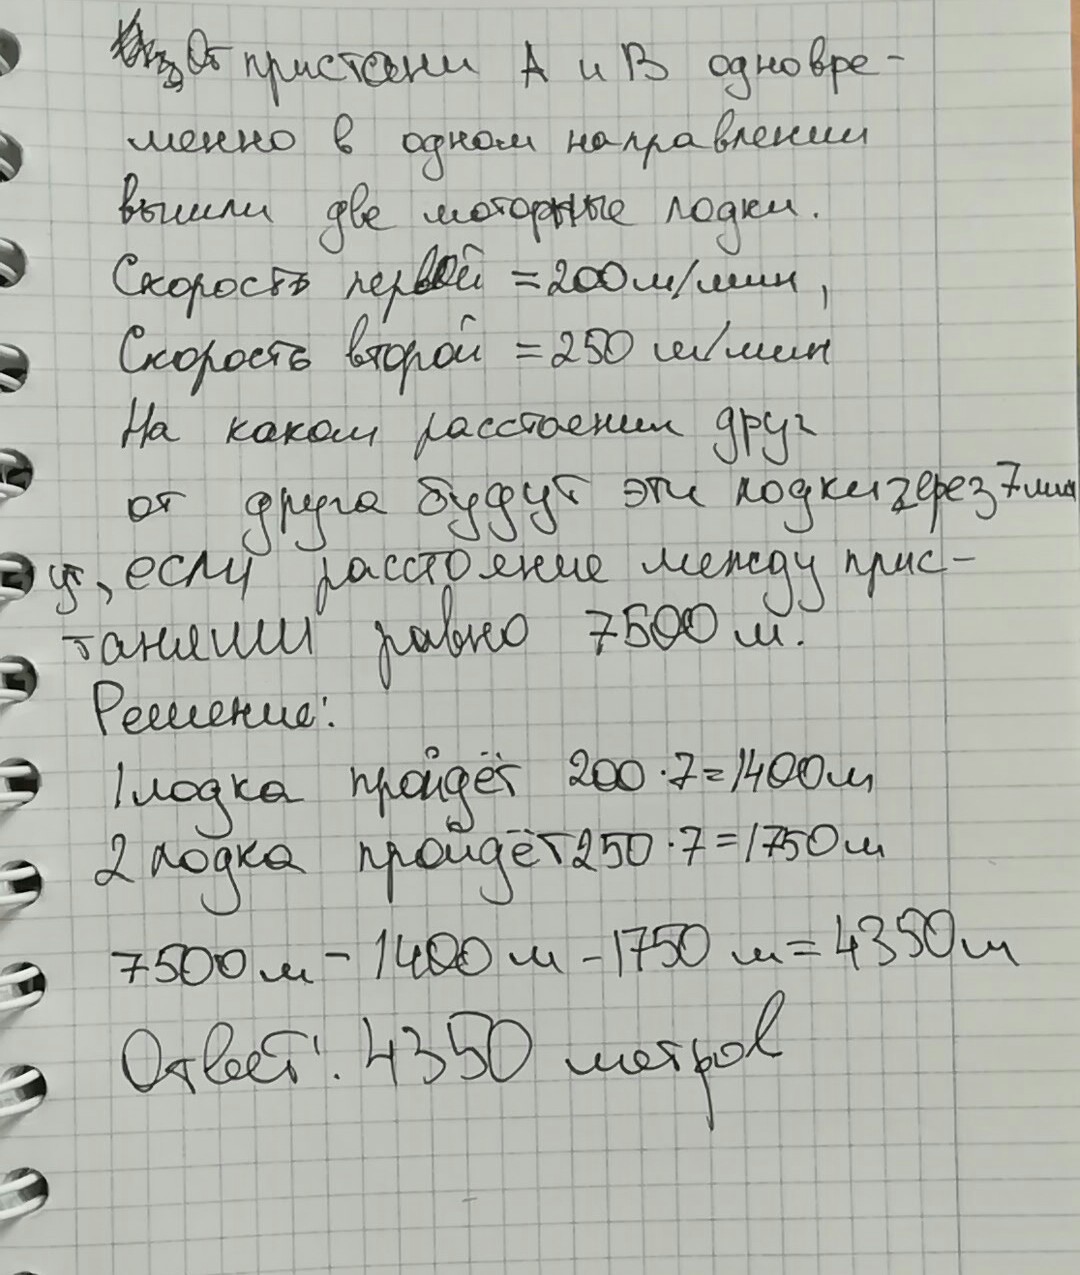 От пристени А и В одновре-
менно в одном направлении
вышли две моторные лодки.
Скорость первой =200м/мин,
Скорость второй =250 м/мин
На каком расстоении друг
от друга будут эти лодки через 7 мин
ут, если растояние между прис-
танями равно 7500 м.
Решение:
1 лодка пройдёт 200·7=1400м
2 лодка пройдёт 250·7=1750м
7500м - 1400м - 1750 м = 4350м
Ответ: 4350 метров